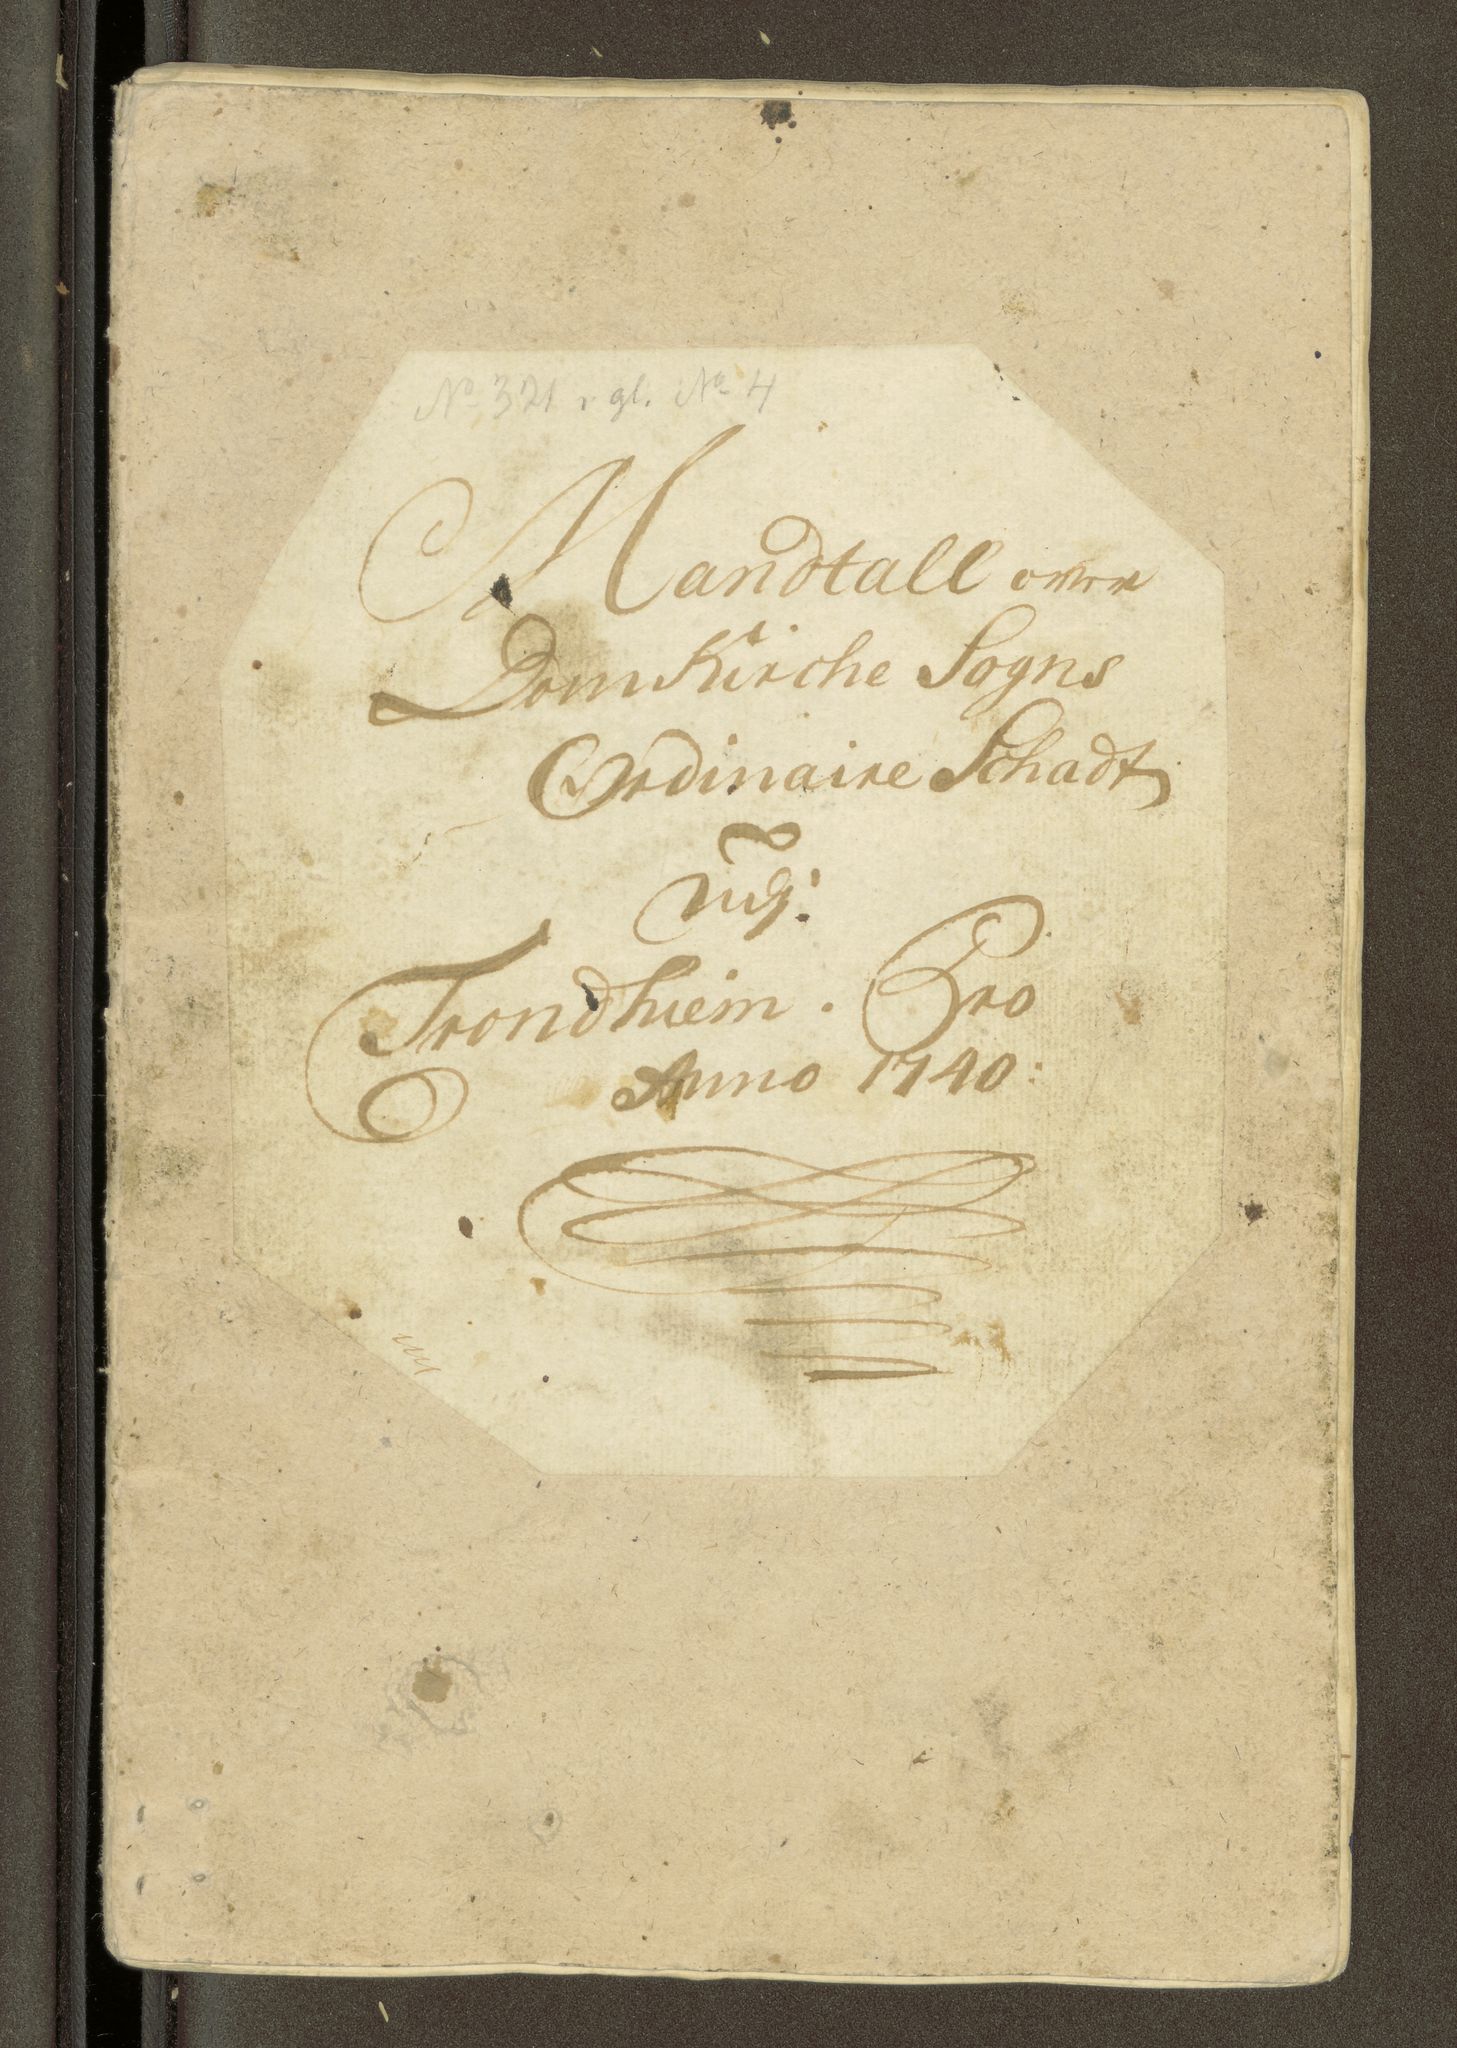 No 321 rgl. No 4
Mandtall over
Dom Kirche Sogns
Ordinaire Schadt
udj:
Trondhiem. Pro
Anno 1740: